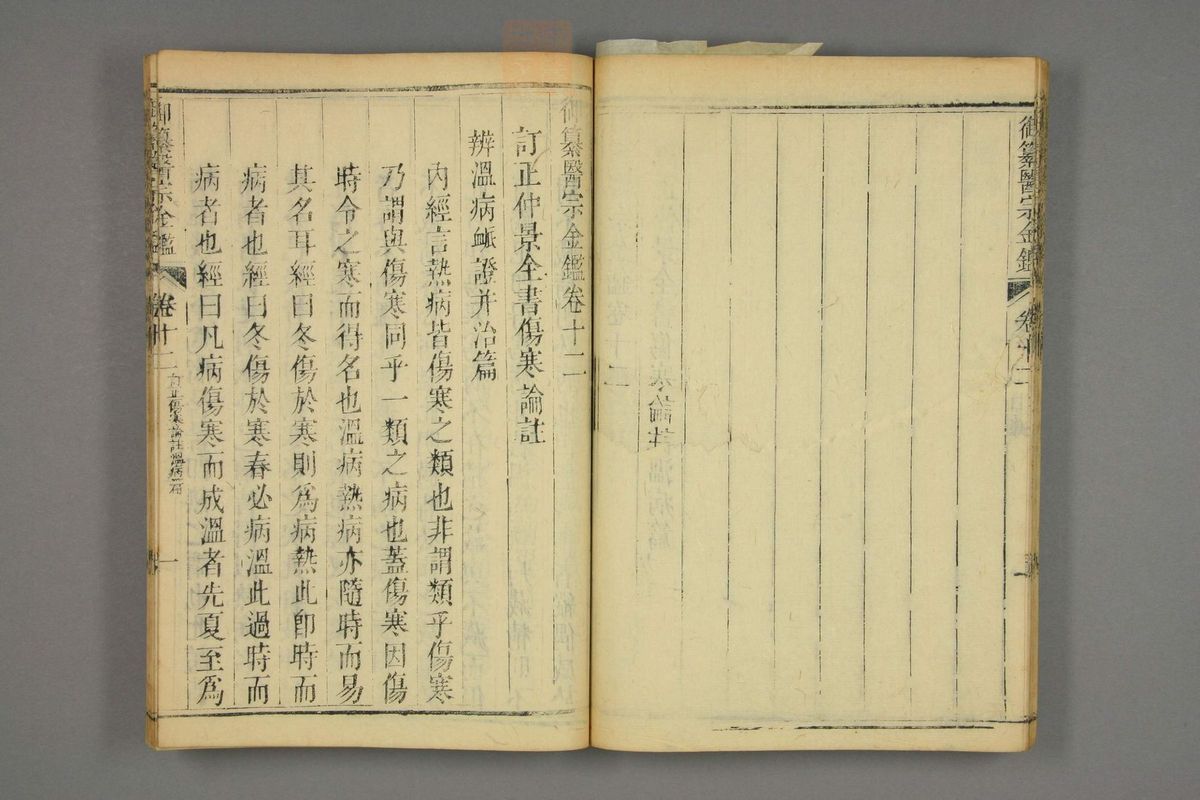 御纂醫宗金鑑
卷十二
一
御纂醫宗金鑑卷十二
訂正仲景全書傷寒論註
辨溫病脈證并治篇
內經言熱病皆傷寒之類也非謂類乎傷寒
乃謂與傷寒同乎一類之病也蓋傷寒因傷
時令之寒而得名也溫病熱病亦隨時而易
其名耳經曰冬傷於寒則爲病熱此卽時而
病者也經曰冬傷於寒春必病溫此過時而
病者也經曰凡病傷寒而成溫者先夏至爲
御纂醫宗金鑑
卷十二
訂正傷寒論註溫病篇
一